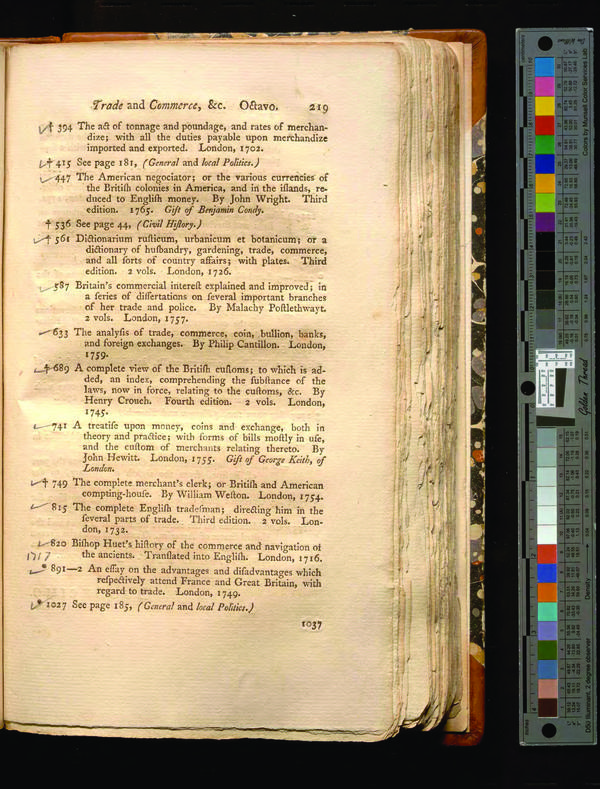 Trade and Commerce, &c. Octavo. 219
† 394 The act of tonnage and poundage, and rates of merchan-
dize; with all the duties payable upon merchandize
imported and exported. London, 1702.
† 415 See page 181, (General and local Politics.)
447 The American negociator; or the various currencies of
the British colonies in America, and in the islands, re-
duced to English money. By John Wright. Third
edition. 1765. Gift of Benjamin Condy.
† 536 See page 44, (Civil History.)
† 561 Dictionarium rusticum, urbanicum et botanicum; or a
dictionary of husbandry, gardening, trade, commerce,
and all sorts of country affairs; with plates. Third
edition. 2 vols. London, 1726.
587 Britain's commercial interest explained and improved; in
a series of dissertations on several important branches
of her trade and police. By Malachy Postlethwayt.
2 vols. London, 1757.
633 The analysis of trade, commerce, coin, bullion, banks,
and foreign exchanges. By Philip Cantillon. London,
1759.
† 689 A complete view of the British customs; to which is ad-
ded, an index, comprehending the substance of the
laws, now in force, relating to the customs, &c. By
Henry Crouch. Fourth edition. 2 vols. London,
1745.
741 A treatise upon money, coins and exchange, both in
theory and practice; with forms of bills mostly in use,
and the custom of merchants relating thereto. By
John Hewitt. London, 1755. Gift of George Keith, of
London.
† 749 The complete merchant's clerk; or British and American
compting-house. By William Weston. London, 1754.
815 The complete English tradesman; directing him in the
several parts of trade. Third edition. 2 vols. Lon-
don, 1732.
820 Bishop Huet's history of the commerce and navigation of
1717 the ancients. Translated into English. London, 1716.
* 891—2 An essay on the advantages and disadvantages which
respectively attend France and Great Britain, with
regard to trade. London, 1749.
* 1027 See page 185, (General and local Politics.)
1037
Colors by Munsell Color Services Lab
Golden Thread
Density
D50 Illuminant, 2 degree observer
inches